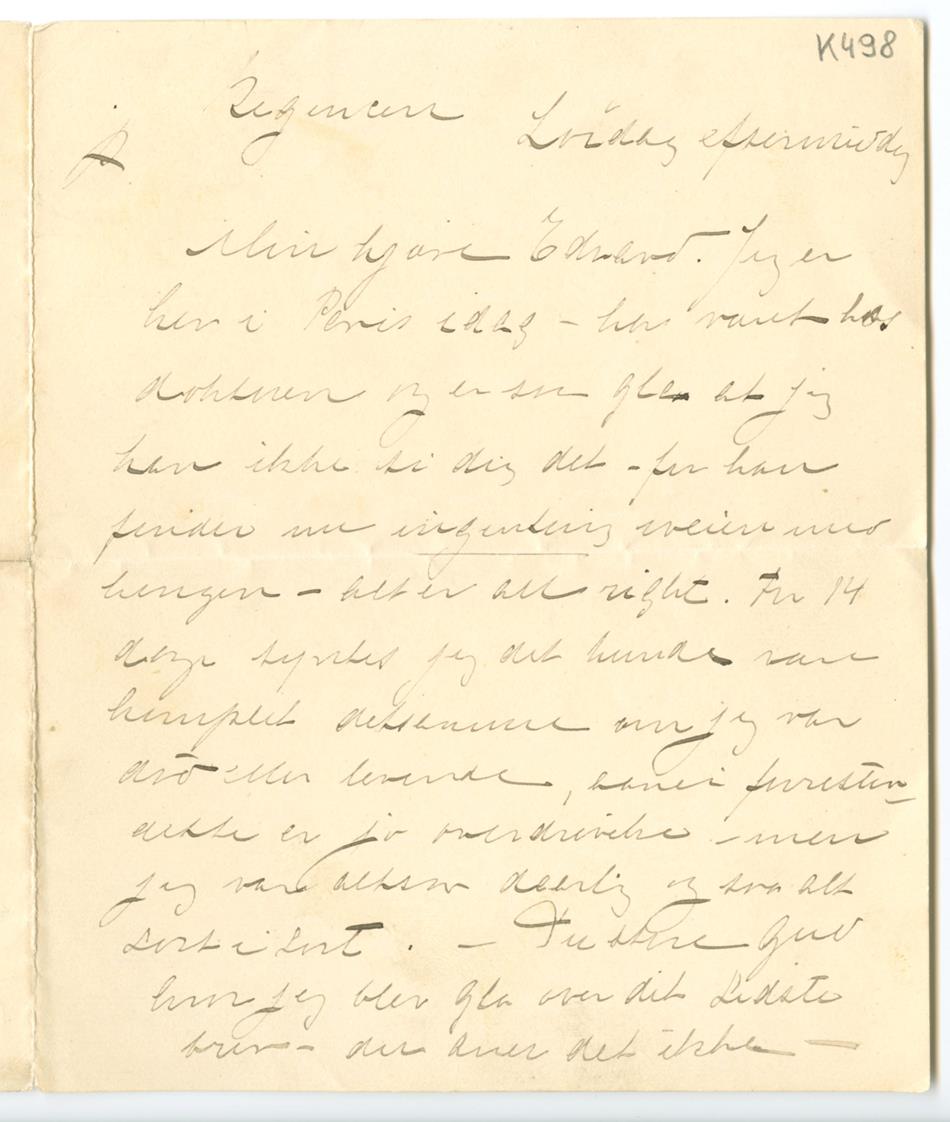 K498
Regencen Lördag eftermiddg
Min kjære Edvard. Jeg er
her i Paris idag – har været hos
doktoren og er saa gla at jeg
kan ikke si dig det – for han
finder nu ingenting iveien med
lungen – alt er all right. For 14
dage syntes jeg det kunde være
komplet detsamme om jeg var
död eller levende, aanei forresten –
dette er jo overdrivelse – men
jeg var altsaa daarlig og saa alt
sort i sort. – Du store Gud
hvor jeg blev gla over dit sidste
brev – du aner det ikke –